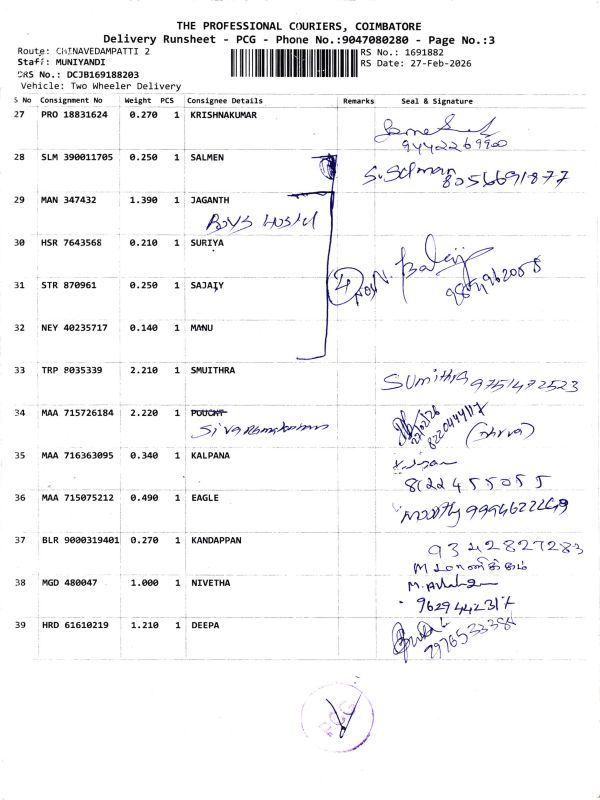 THE PROFESSIONAL COURIERS, COIMBATORE
Delivery Runsheet - PCG - Phone No.:9047080280 - Page No.:3
Route: CHINAVEDAMPATTI 2
RS No.: 1691882
Staff: MUNIYANDI
RS Date: 27-Feb-2026
DRS No.: DCJB169188203
Vehicle: Two Wheeler Delivery
S No Consignment No Weight PCS Consignee Details Remarks Seal & Signature
27 PRO 18831624 0.270 1 KRISHNAKUMAR
9442269900
28 SLM 390011705 0.250 1 SALMEN
S. Salman 8056691877
29 MAN 347432 1.390 1 JAGANTH
Boys Hostel
30 HSR 7643568 0.210 1 SURIYA
31 STR 870961 0.250 1 SAJAIY
4
32 NEY 40235717 0.140 1 MANU
33 TRP 8035339 2.210 1 SMUITHRA
SUmithra 9751472523
34 MAA 715726184 2.220 1 POUCHT
27/02/26
8220444117
35 MAA 716363095 0.340 1 KALPANA
8122455055
36 MAA 715075212 0.490 1 EAGLE
37 BLR 9000319401 0.270 1 KANDAPPAN
9342827283
38 MGD 480047 1.000 1 NIVETHA
39 HRD 61610219 1.210 1 DEEPA
PCG